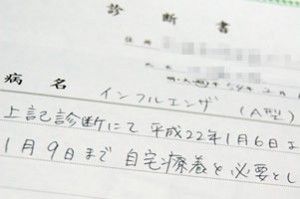 診断書
住所
病名 インフルエンザ (A型)
上記診断にて 平成22年1月6日よ
1月9日まで 自宅療養を必要とし